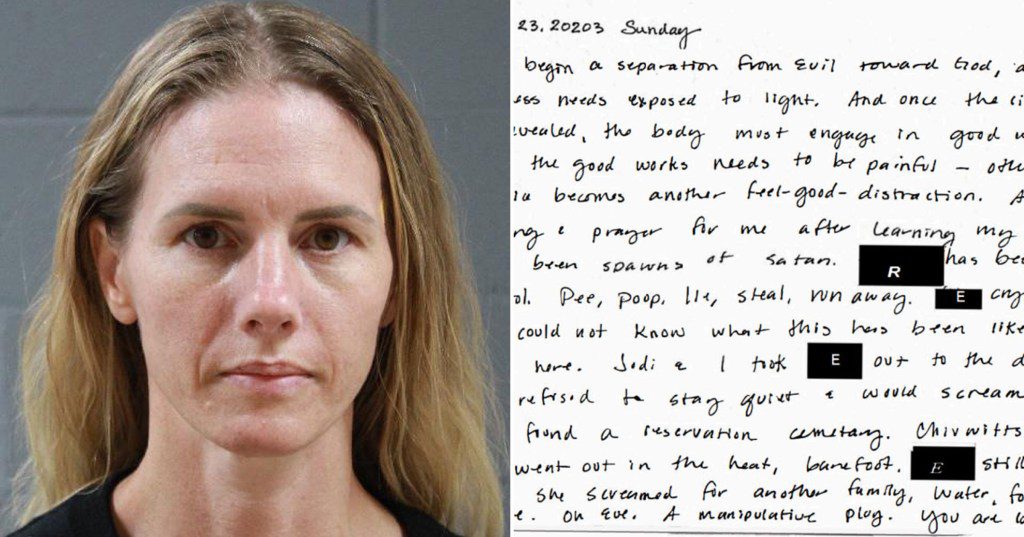 23, 20203 Sunday
begin a separation from Evil toward God, a
ess needs exposed to light. And once the
vealed, the body must engage in good w
the good works needs to be painful — othe
becomes another feel-good-distraction. A
ng & prayer for me after learning my
been spawns of satan. R has bee
ol. Pee, poop, lie, steal, run away. E cry
could not know what this has been like
here. Jodi & I took E out to the d
refused to stay quiet & would scream
found a reservation cemetary. Chivwitts
went out in the heat, barefoot. E still
she screamed for another family, water, fo
e. On Eve. A manipulative ploy. You are